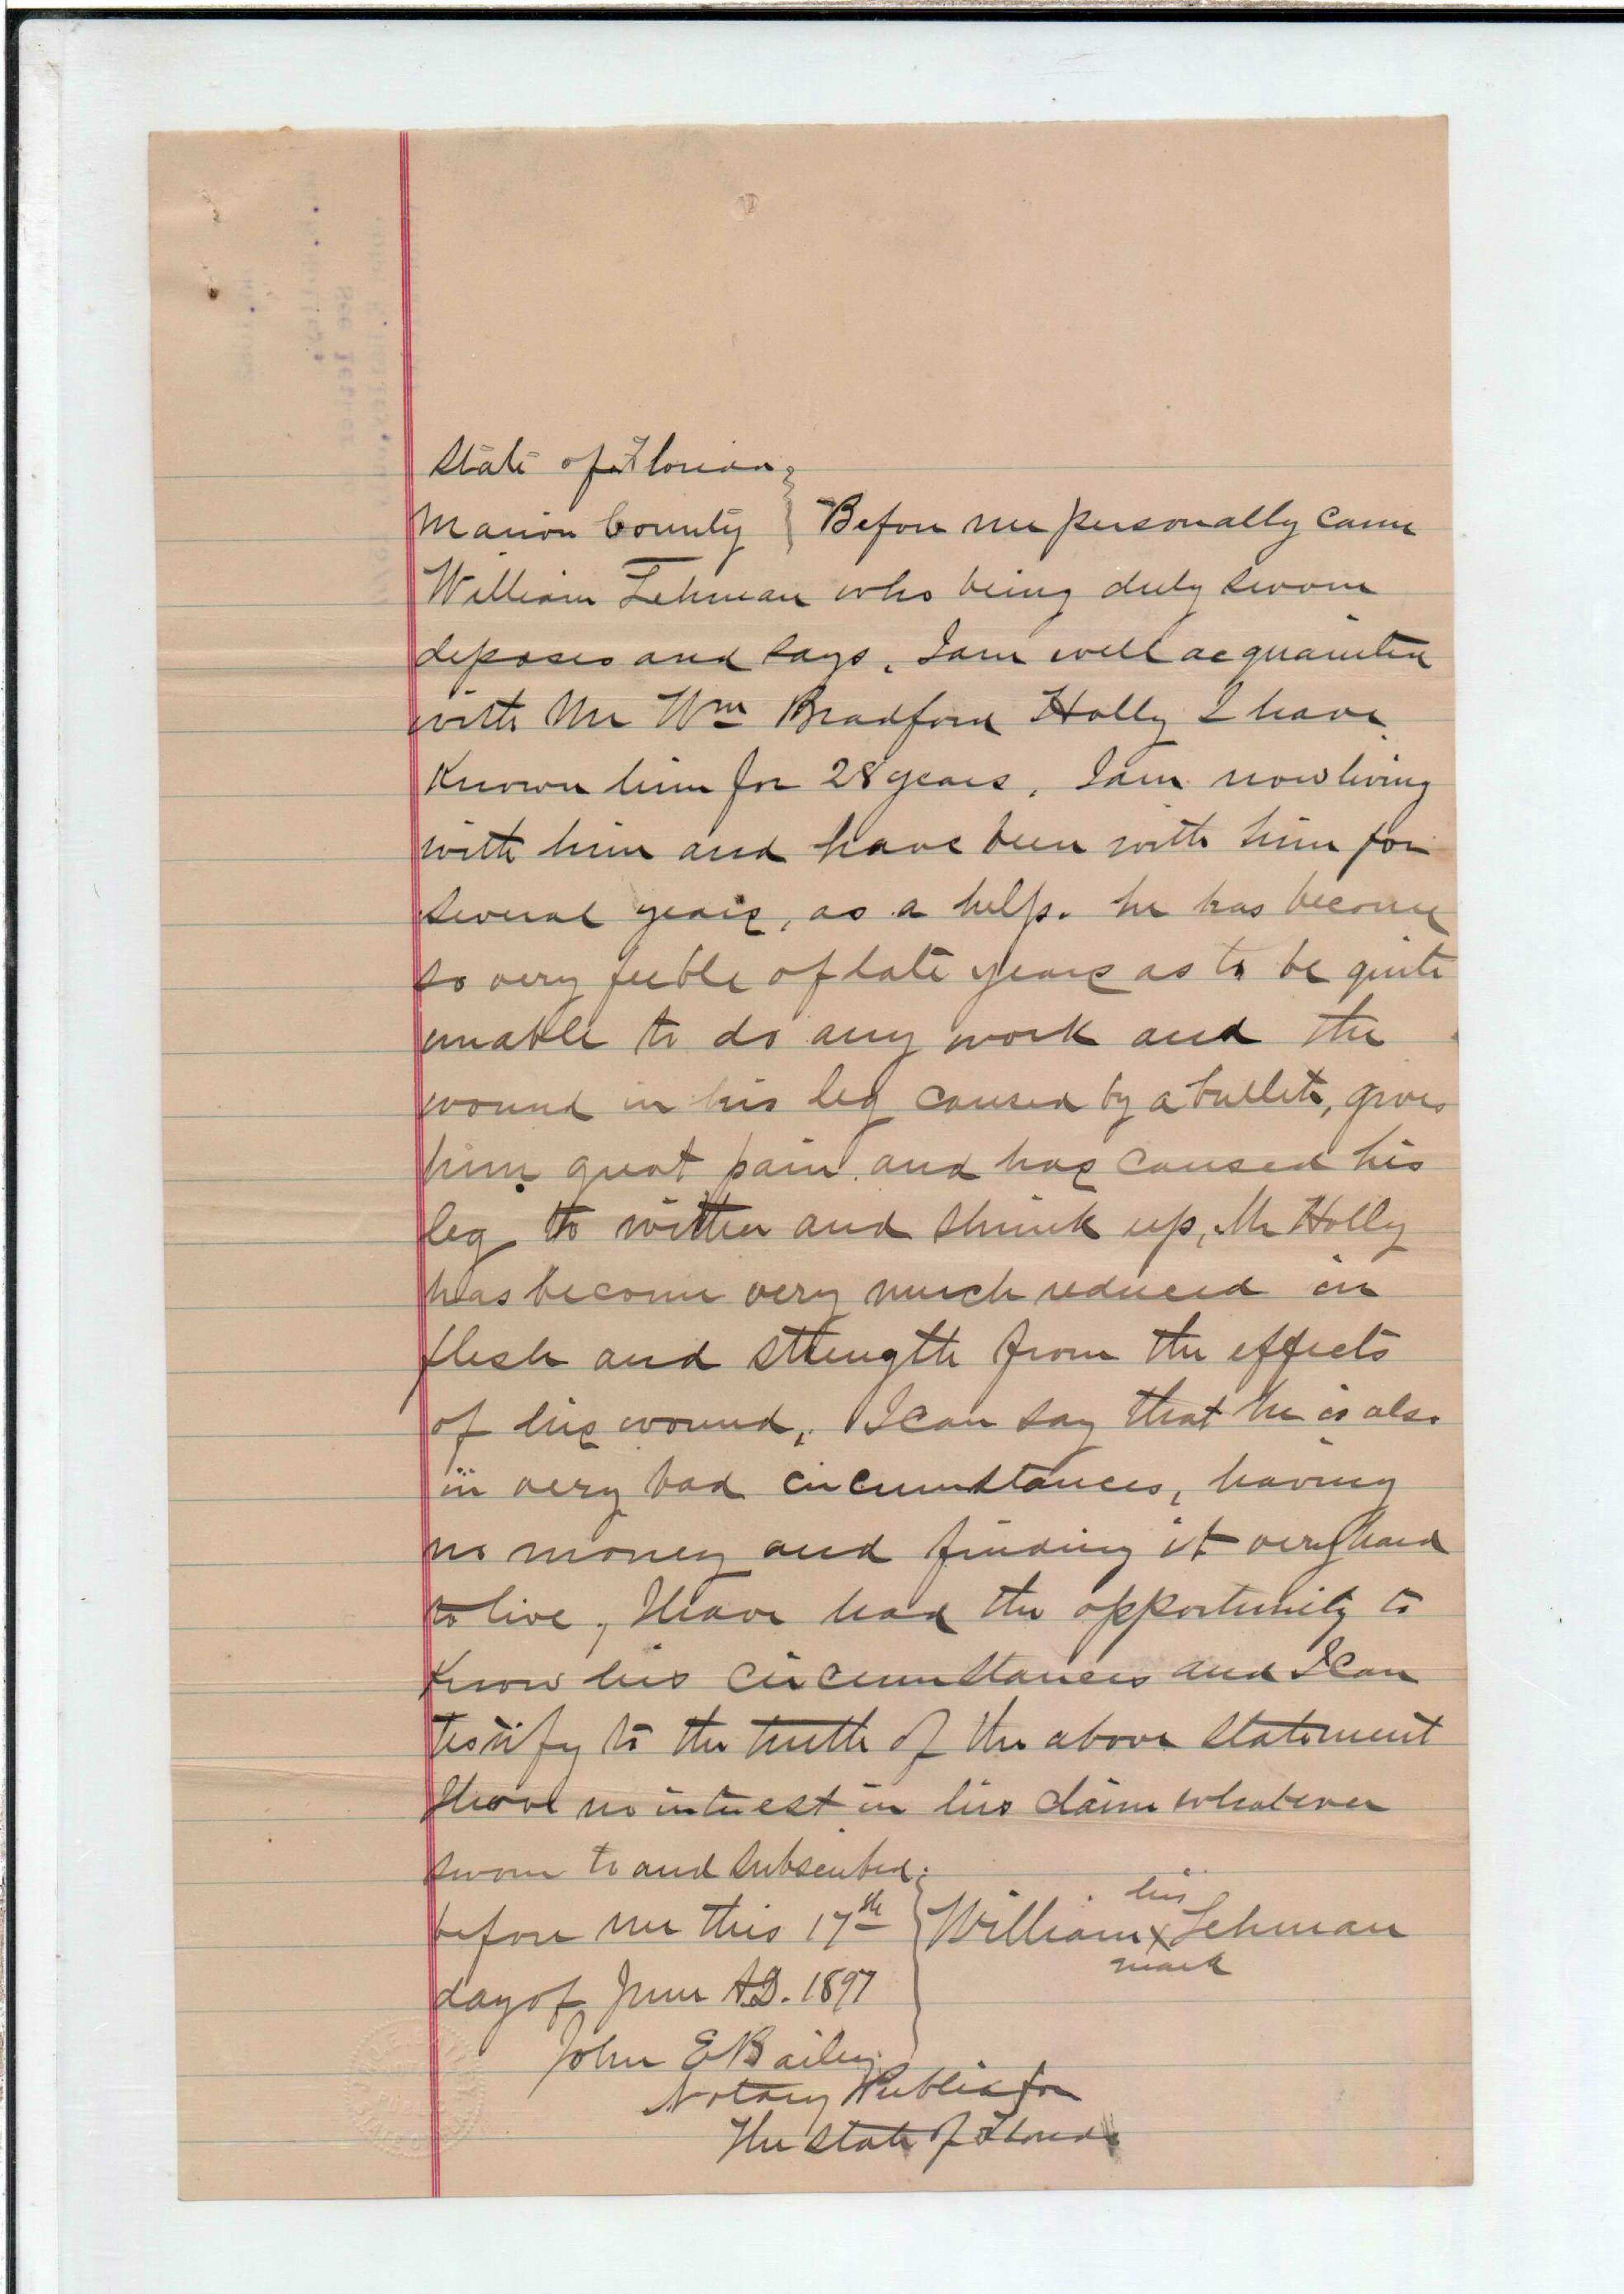 State of Florida
Marion County } Before me personally came
William Lehman who being duly sworn
deposes and says, I am well acquainted
with Mr Wm Bradford Holly I have
known him for 28 years, I am now living
with him and have been with him for
several years, as a help. he has become
so very feeble of late years as to be quite
unable to do any work and the
wound in his leg caused by a bullet, gives
him great pain and has caused his
leg to wither and shrink up, Mr Holly
has become very much reduced in
flesh and strength from the effects
of his wound, I can say that he is also
in very bad circumstances, having
no money and finding it very hard
to live, I have had the opportunity to
know his circumstances and I can
testify to the truth of the above statement
I have no interest in his claim whatever
sworn to and subscribed
his
before me this 17th } William x Lehman
mark
day of June A.D. 1897
John E Bailey
Notary Public for
The State of Florida